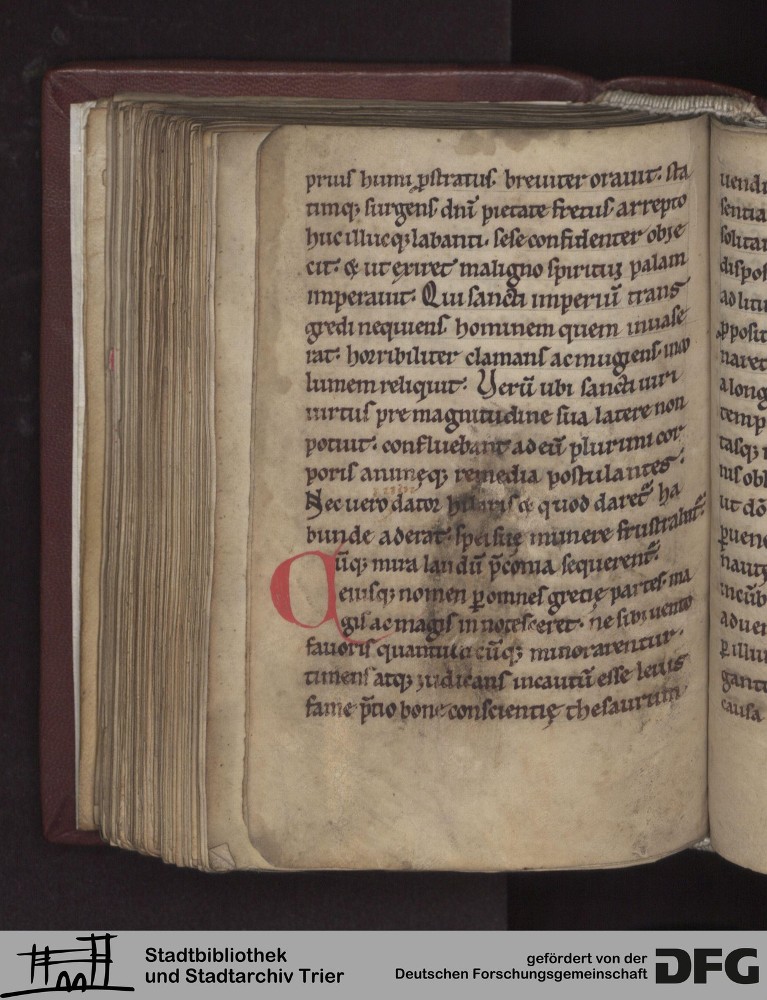 prius humi ꝓstratus. breuiter orauit. sta
timq; surgens dn̄i pietate fretus arrepto
huc illucq; labanti. sese confidenter obie
cit. & ut exiret maligno spirituj palam
imperauit. Qui sancti imperiū trans
gredi nequiens hominem quem inuase
rat. horribiliter clamans ac mugiens. inco
lumem reliquit. Verū ubi sancti uiri
uirtus pre magnitudine sua latere non
potuit. confluebant ad eū plurimi cor
poris animęq; remedia postulantes.
Nec uero dator hilaris & quod daret ha
bunde aderat. spei suę munere frustrabat᷑.
Cūq; mira laudū p̄conia sequerent᷑.
eiusq; nomen ꝑ omnes gretię partes. ma
gis ac magis innotesceret. ne sibi uento
fauoris quantulūcūq; minorarentur.
timens atq; iudicans incautū esse leuis
fame p̄tio bone conscientię thesaurum
uendi
sentia
solitar
dispos
ad litu
ꝓposit
naret
a long
temp
tasq;
nis obl
ut dō
ꝑuene
nauta
incūb
aduer
ꝑ illur
gant
causa
Stadtbibliothek
und Stadtarchiv Trier
gefördert von der
Deutschen Forschungsgemeinschaft
DFG